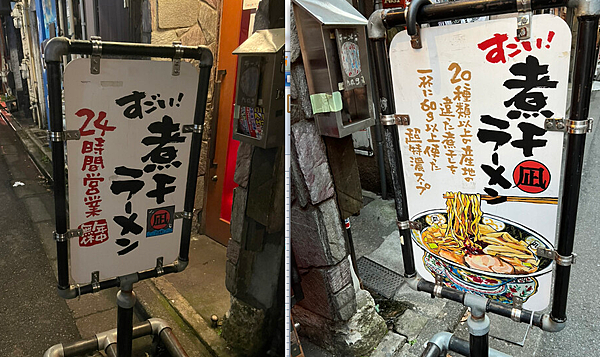 すごい!
煮干
ラーメン
凪
24時間営業
すごい!
煮干
ラーメン
凪
20種類以上の産地の
違った煮干しを
一杯に60g以上使った
超特濃スープ